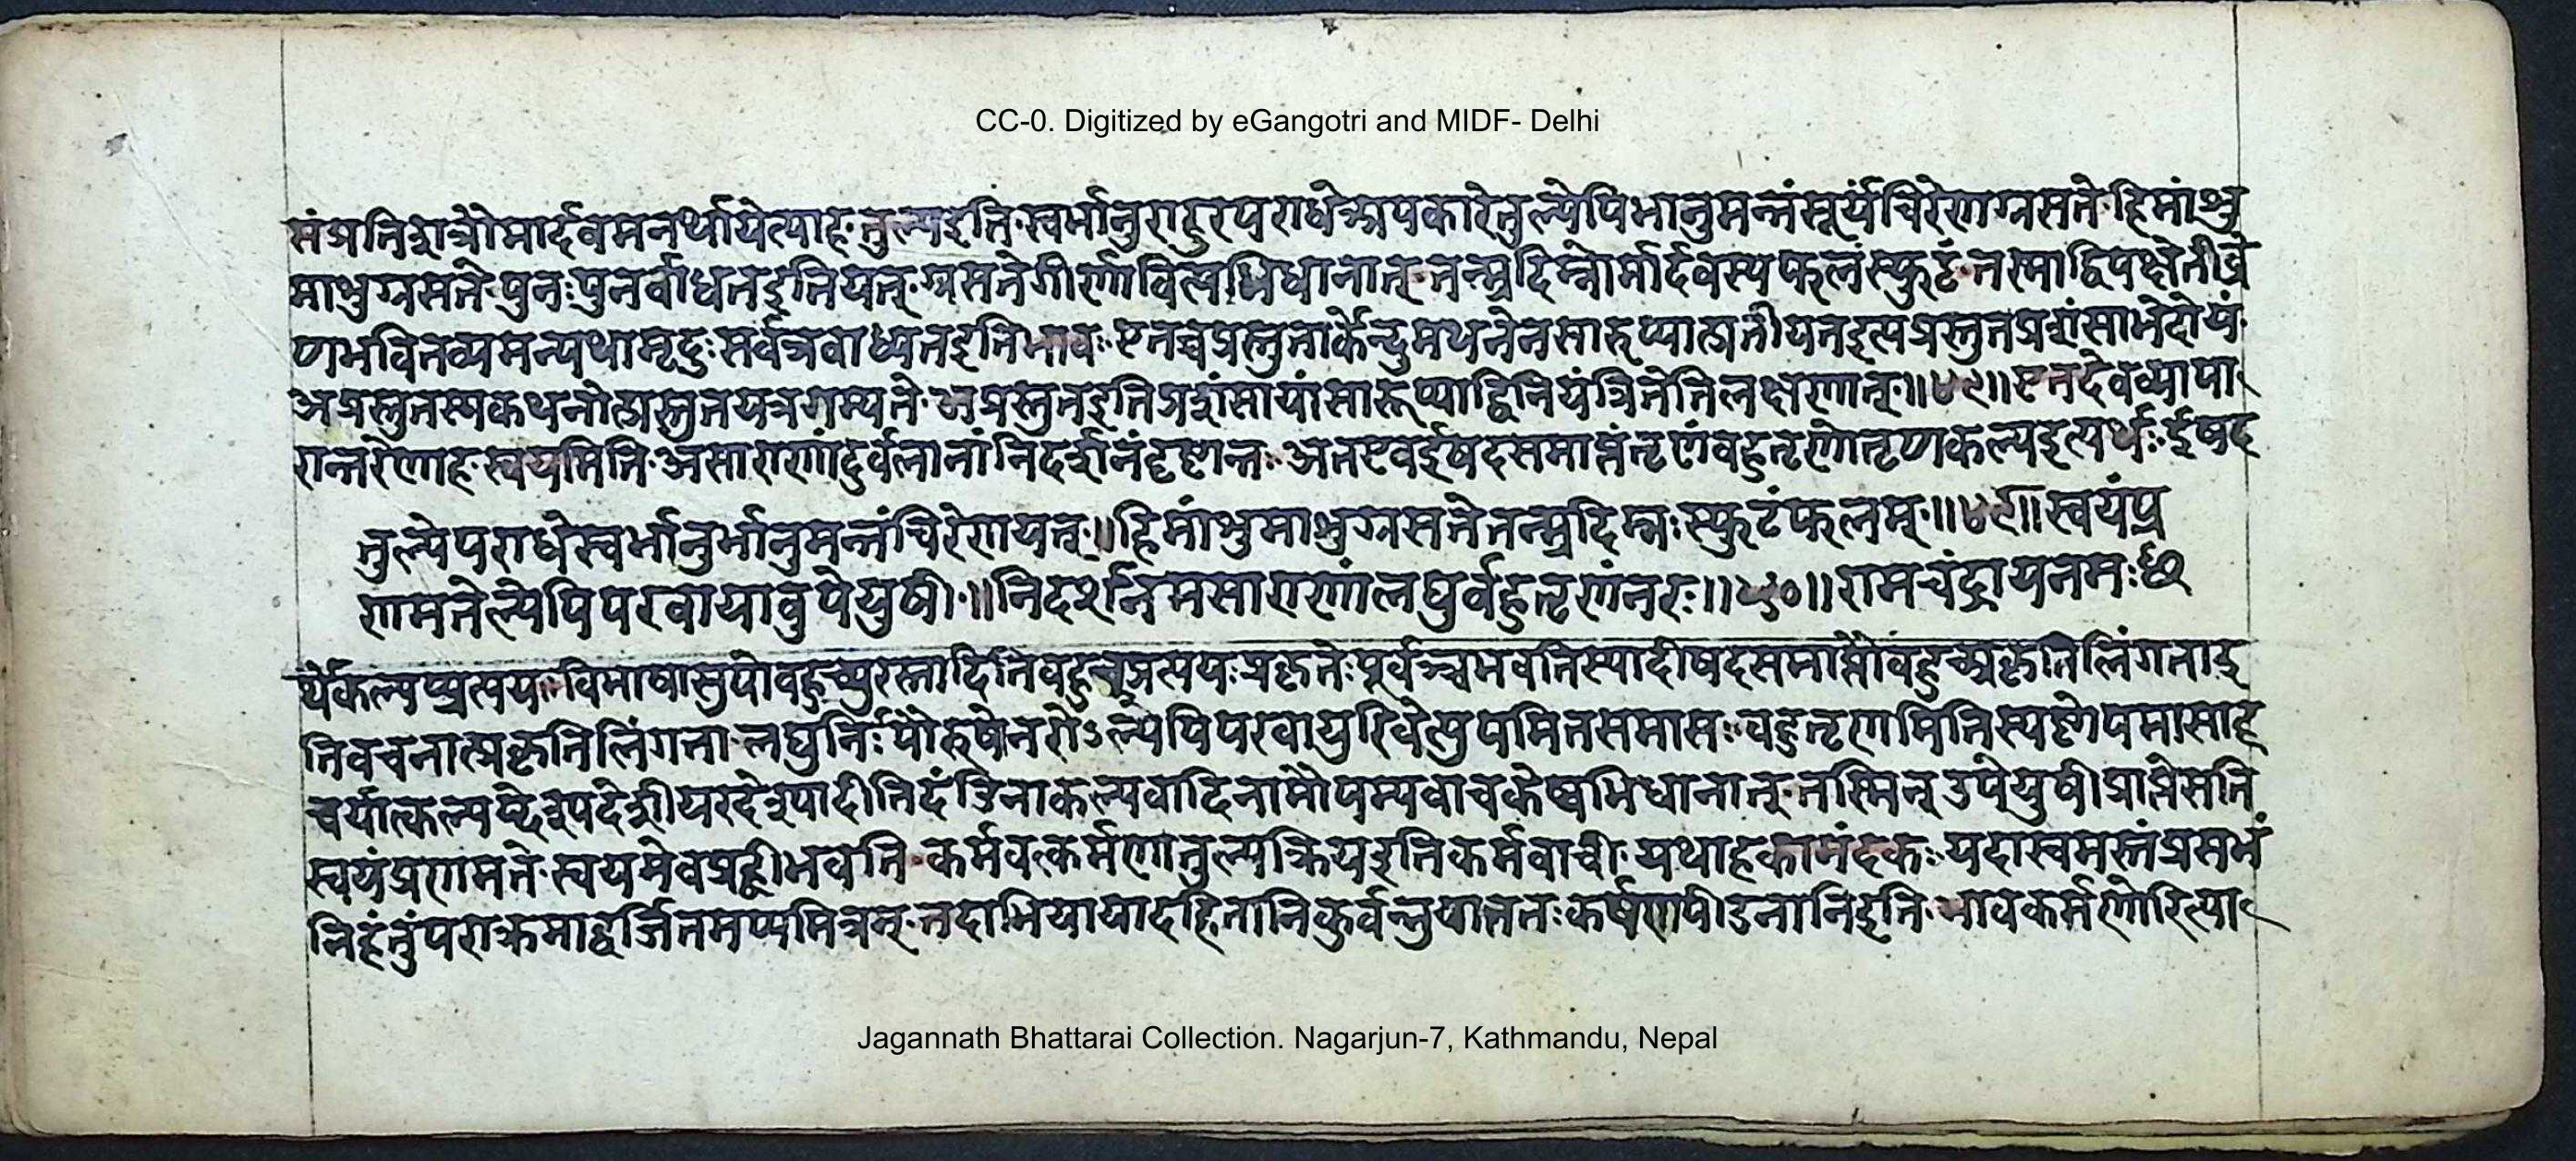 CC-0. Digitized by eGangotri and MIDF- Delhi
संप्रतिशत्रौमार्दवमनर्थायेत्याह तुल्यइति स्वर्भानुराहुरपराधेअपकारेतुल्येपिभानुमन्तंसूर्यंचिरेणग्रसते हिमांशु
माशुग्रसते पुनःपुनर्वाधतइतियत् ग्रसतेगीर्णावित्यभिधानात् तन्म्रदिम्नोर्मार्दवस्यफलंस्फुटं तस्माद्विपक्षेतीव्रे
णभवितव्यमन्यथामृदुःसर्वत्रवाध्यतइतिभावः एतच्चप्रस्तुतार्केन्दुमथनेनसारुप्यात्प्रतीयतइत्यप्रस्तुतप्रशंसाभेदोयं
अप्रस्तुतस्यकथनात्प्रस्तुतयत्रगम्यते अप्रस्तुतइतिप्रशंसायांसारूप्याद्विनियंत्रितेतिलक्षणात् ॥४९॥ एतदेवव्यापा
रान्तरेणाह स्वयमिति असाराणांदुर्वलानांनिदर्शनंदृष्टान्तः अतएवईषदसमाप्तंतृणंवहुतृणंतृणकल्पइत्यर्थः ईषद
तुल्येपराधेस्वर्भानुर्भानुमन्तंचिरेणयत् ॥ हिमांशुमाशुग्रसतेतन्म्रदिम्नःस्फुटंफलम् ॥४९॥ स्वयंप्र
णमतेल्पेपिपरवायावुपेयुषी ॥ निदर्शनमसाराणांलघुर्वहुतृणंनरः ॥५०॥ रामचंद्रायनमः
र्थेकल्पप्प्रत्ययः विभाषासुपोवहुच्पुरस्तादितिवहुच्प्रत्ययःप्रकृतेःपूर्वञ्चभवतिस्यादीषदसमाप्तौवहुच्प्रकृतिलिंगताइ
तिवचनात्प्रकृतिलिंगता लघुर्निःपौरुषोनरोऽल्पेपिपरवायुरिवेत्युपमितसमासः वहुतृणमितिस्पष्टोपमासाह
चर्यात्कल्पप्देशूपदेशीयरदेशूपादीतिदंडिनाकल्पवादिनामौपम्यवाचकेष्वभिधानात् तस्मिन् उपेयुषीप्राप्तेसति
स्वयंप्रणमते स्वयमेवप्रह्वीभवति कर्मवत्कर्मणातुल्यक्रियइतिकर्मवाची यथाहकामंदकः यदास्वमस्तंप्रसभं
निहंतुंपराक्रमाद्वर्जितमप्यमित्रम् तदाभियायादहितानिकुर्वन्नुयात्ततःकर्षणपीडनानिइति भावकर्मणोरित्या
Jagannath Bhattarai Collection. Nagarjun-7, Kathmandu, Nepal